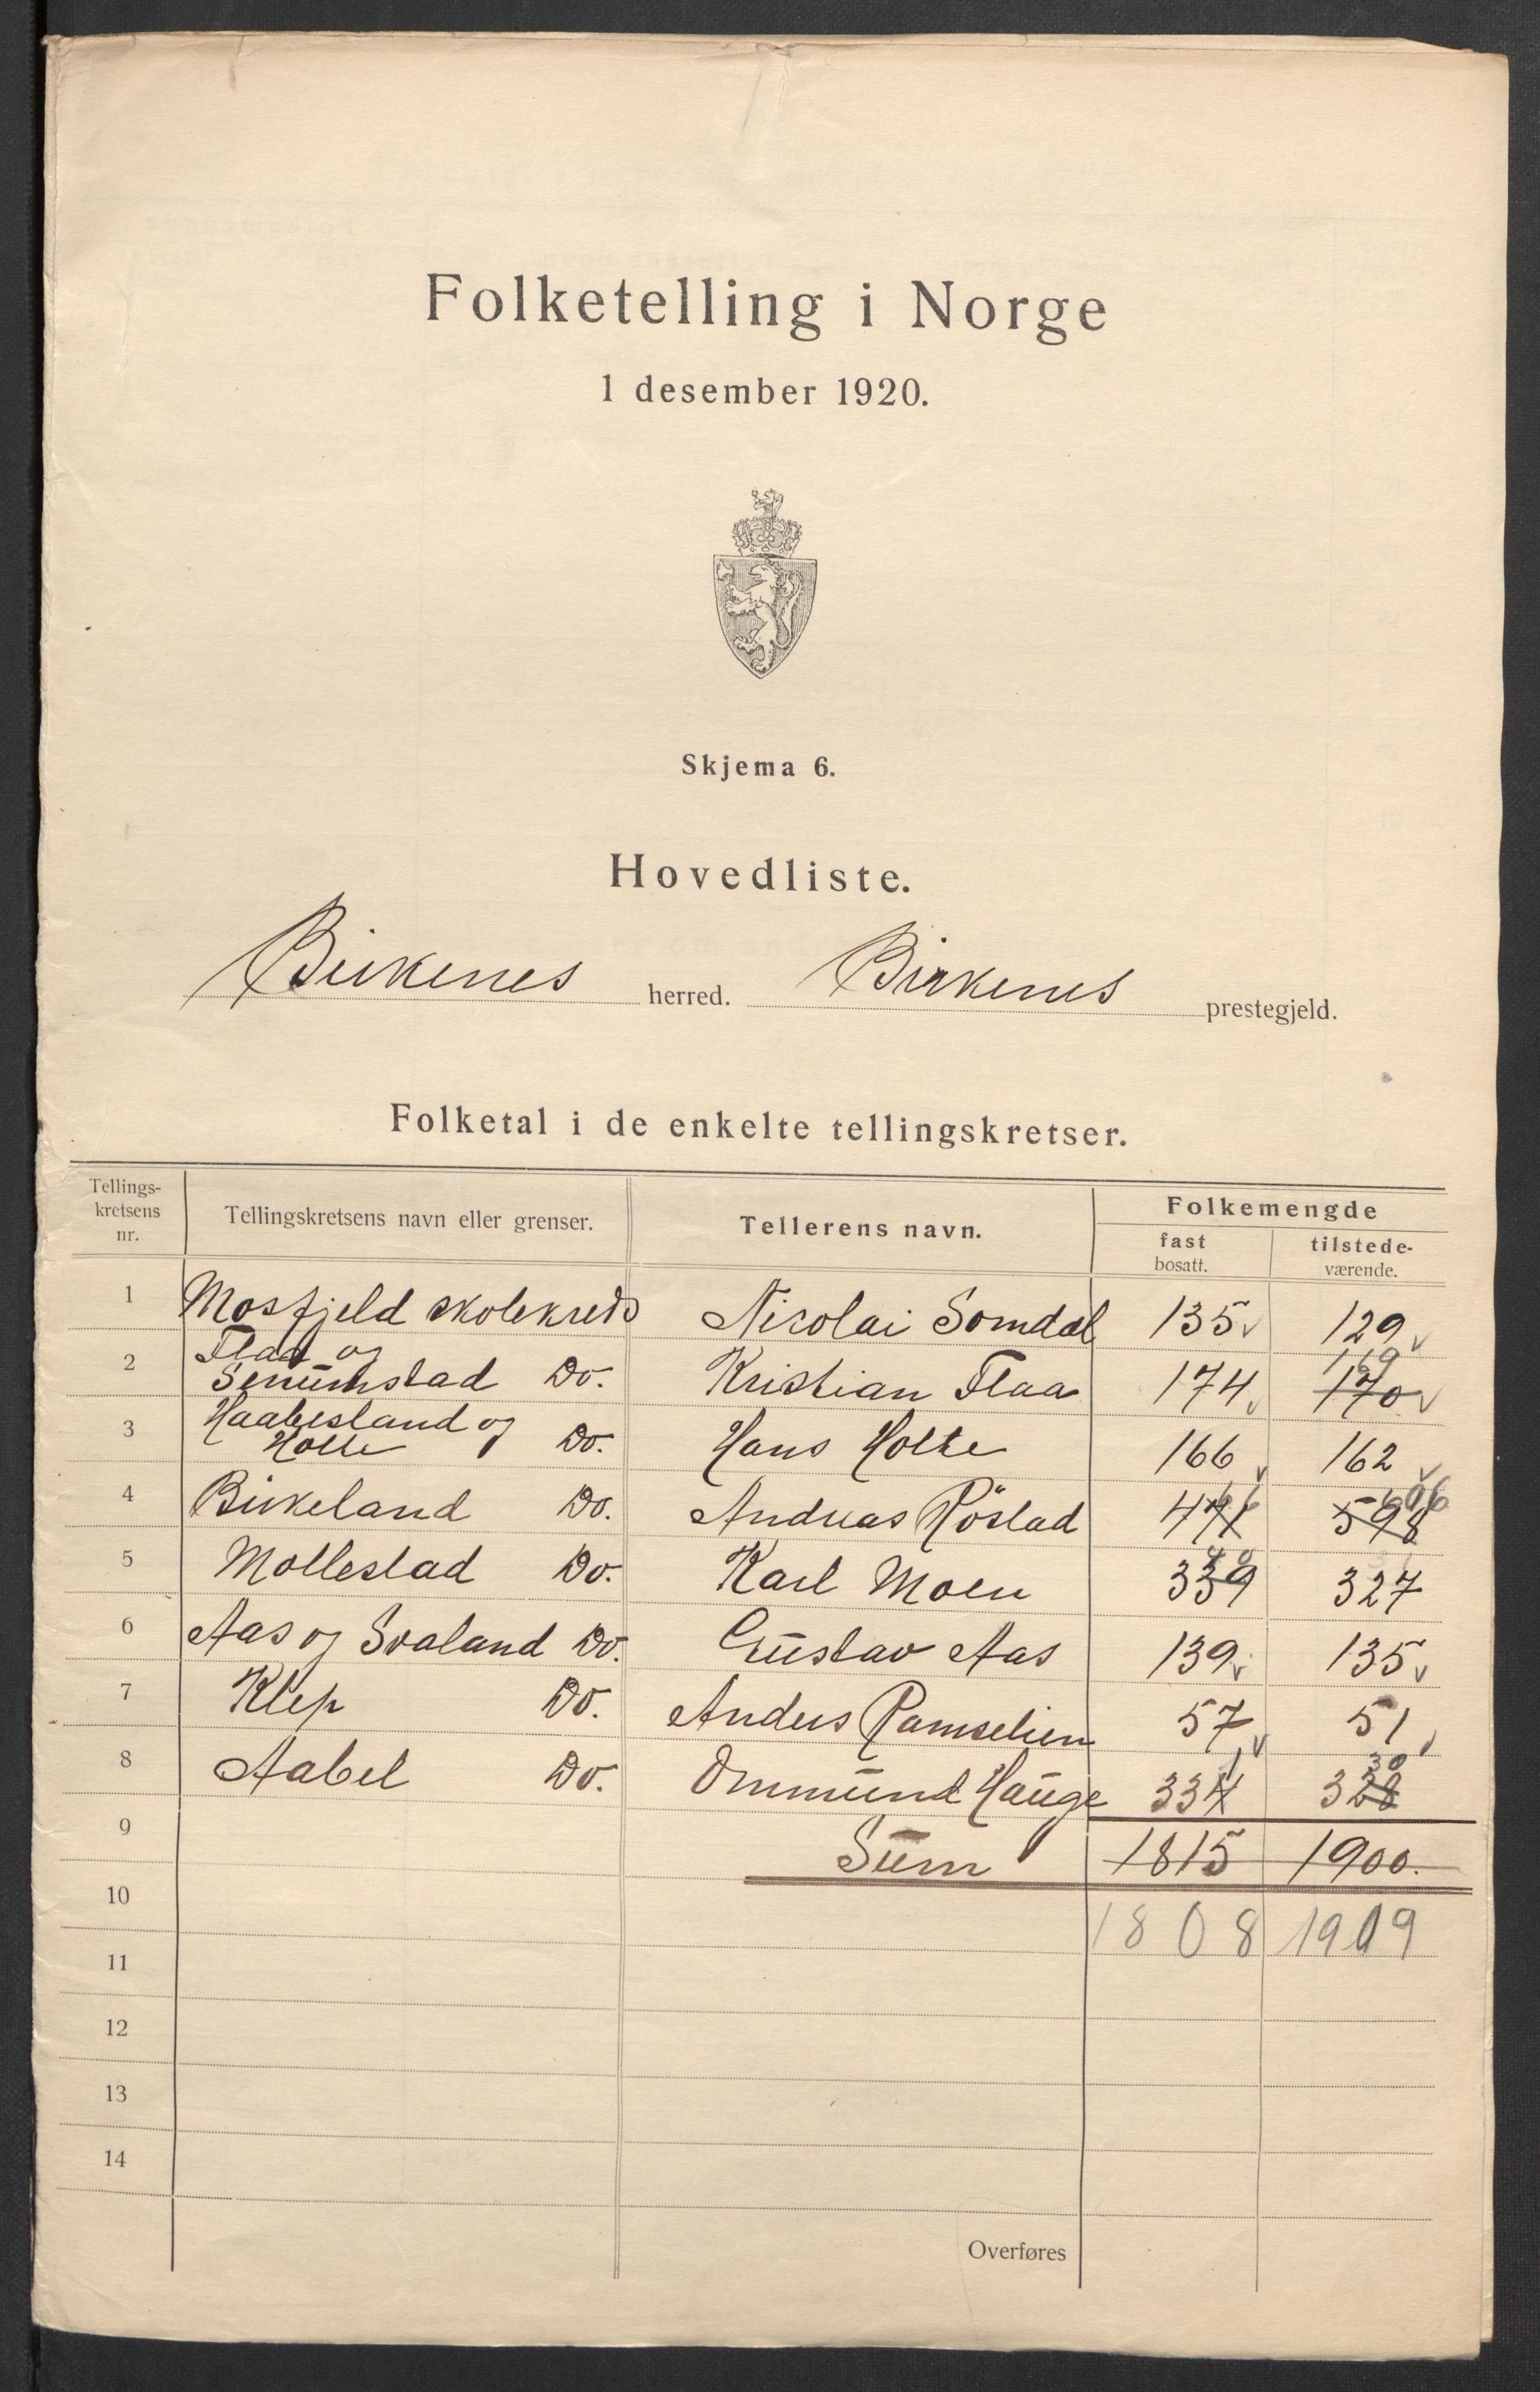 Folketelling i Norge
1 desember 1920.
Skjema 6.
Hovedliste.
Birkenes herred. Birkenes prestegjeld.
Folketal i de enkelte tellingskretser.
Tellings-
kretsens
nr.
Tellingskretsens navn eller grenser.
Tellerens navn.
Folkemengde
fast
bosatt.
tilstede-
værende.
1 Mosfjeld skolekreds Nikolai Somdal 135 129
2 Flaa og
Senumstad Do. Kristian Flaa 174 170 169
3 Haabesland og
Holte Do. Hans Holte 166 162
4 Birkeland Do. Andreas Röslad 471 66 598 606
5 Mollestad Do. Karl Moen 339 40 327
6 Aas og Svaland Do. Gustav Aas 139 135
7 Klep Do. Anders Ramselien 57 51
8 Aabel Do. Ommund Hauge 334 1 328 30
9 Sum 1815 1900.
10 1808 1909
11
12
13
14
Overføres